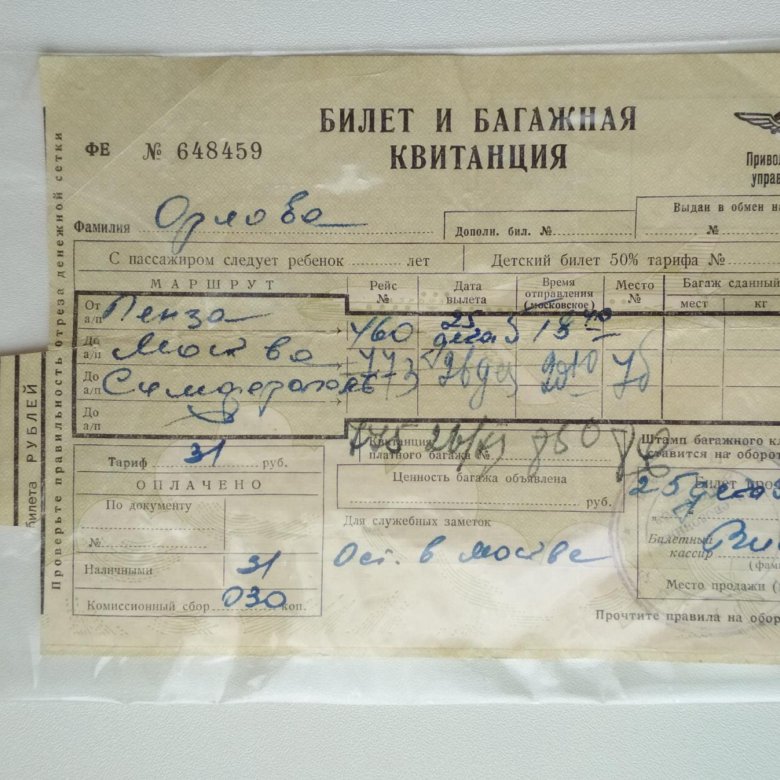 БИЛЕТ И БАГАЖНАЯ
КВИТАНЦИЯ
ФЕ № 648459
Привол
управ
Выдан в обмен на
№
Фамилия Орлова
Дополн. бил. №
С пассажиром следует ребенок лет
Детский билет 50% тарифа №
МАРШРУТ
Рейс №
Дата вылета
Время отправления (московское)
Место №
Багаж сданный
мест кг
От а/п Пенза 460 25 дека 18 40
До а/п Москва 773 26 дек 20 10 7б
До а/п Симферополь
До а/п
775 26/XII 850
Квитанция платного багажа №
Штамп багажного кл
ставится на оборот
Тариф 31 руб.
Ценность багажа объявлена
руб.
Билет про
25 дека
ОПЛАЧЕНО
По документу
№
Для служебных заметок
Ост. в Москве
Билетный кассир
(фам
Наличными 31
Комиссионный сбор 030 коп.
Место продажи (
Прочтите правила на обор
Проверьте правильность отреза денежной сетки
билета РУБЛЕЙ